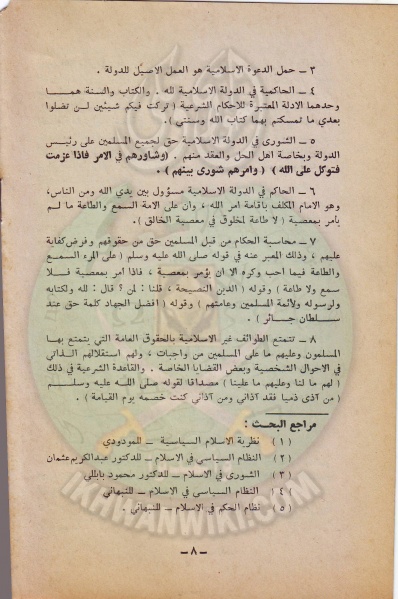 ٣ ــ حمل الدعوة الاسلامية هو العمل الاصيل للدولة .
٤ ــ الحاكمية في الدولة الاسلامية لله . والكتاب والسنة همــا
وحدهما الادلة المعتبرة للاحكام الشرعية ( تركت فيكم شيئين لن تضلوا
بعدي ما تمسكتم بهما كتاب الله وسنتي ) .
٥ ــ الشورى في الدولة الاسلامية حق لجميع المسلمين على رئيس
الدولة وبخاصة اهل الحل والعقد منهم . (وشاورهم في الامر فاذا عزمت
فتوكل على الله ) ( وامرهم شورى بينهم ) .
٦ ــ الحاكم في الدولة الاسلامية مسؤول بين يدي الله ومن الناس،
وهو الامام المكلف باقامة امر الله ، وان على الامة السمع والطاعة ما لم
يأمر بمعصية ( لا طاعة لمخلوق في معصية الخالق ) .
٧ ــ محاسبة الحكام من قبل المسلمين حق من حقوقهم وفرض كفاية
عليهم ، وذلك المعبر عنه في قوله صلى الله عليه وسلم ( على المرء السمــع
والطاعة فيما احب وكره الا ان يؤمر بمعصية ، فاذا امر بمعصية فــلا
سمع ولا طاعة ) وقوله ( الدين النصيحة ، قلنا : لمن ؟ قال : لله ولكتابه
ولرسوله ولائمة المسلمين وعامتهم ) وقوله ( افضل الجهاد كلمة حق عند
سلطان جــائر ) .
٨ ــ تتمتع الطوائف غير الاسلامية بالحقوق العامة التي يتمتع بها
المسلمون وعليهم ما على المسلمين من واجبات ، ولهم استقلالهم الذاتي
في الاحوال الشخصية وبعض القضايا الخاصة . والقاعدة الشرعية في ذلك
( لهم ما لنا وعليهم ما علينا ) مصداقا لقوله صلى اللــه عليه وسلــم
( من آذى ذميا فقد آذاني ومن آذاني كنت خصمه يوم القيامة ) .
مراجع البحث :
(١) نظرية الاسلام السياسية ــ للمودودي
(٢) النظام السياسي في الاسلام ــ للدكتور عبدالكريم عثمان
(٣) الشورى في الاسلام ــ للدكتور محمود بابللي
(٤) النظام السياسي في الاسلام ــ للنبهاني
(٥) نظام الحكم في الاسلام ــ للنبهاني .
IKHWANWIKI.COM
ــ ٨ ــ